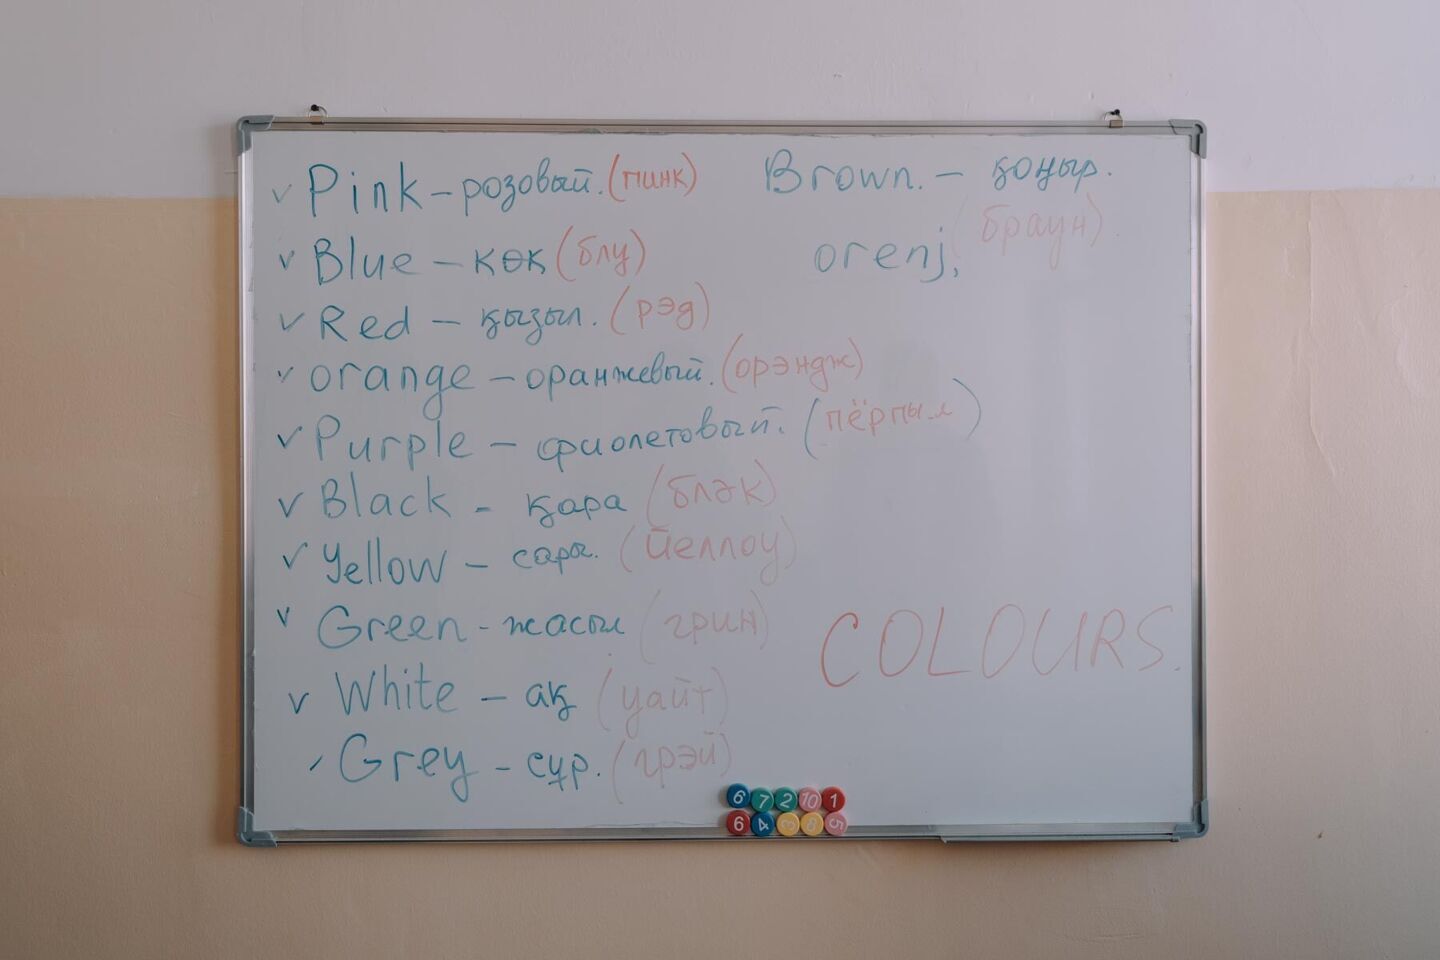 ✓ Pink – розовый. (пинк)
✓ Blue – көк (блу)
✓ Red – қызыл. (рэд)
✓ orange – оранжевый. (орэндж)
✓ Purple – фиолетовый. (пёрпыл)
✓ Black - қара (блэк)
✓ Yellow – сары. (йеллоу)
✓ Green - жасыл (грин)
✓ White – ақ (уайт)
✓ Grey – сұр. (грэй)
Brown. – қоңыр.
(браун)
orenj,
COLOURS.
6 7 2 10 1
6 4 3 8 5